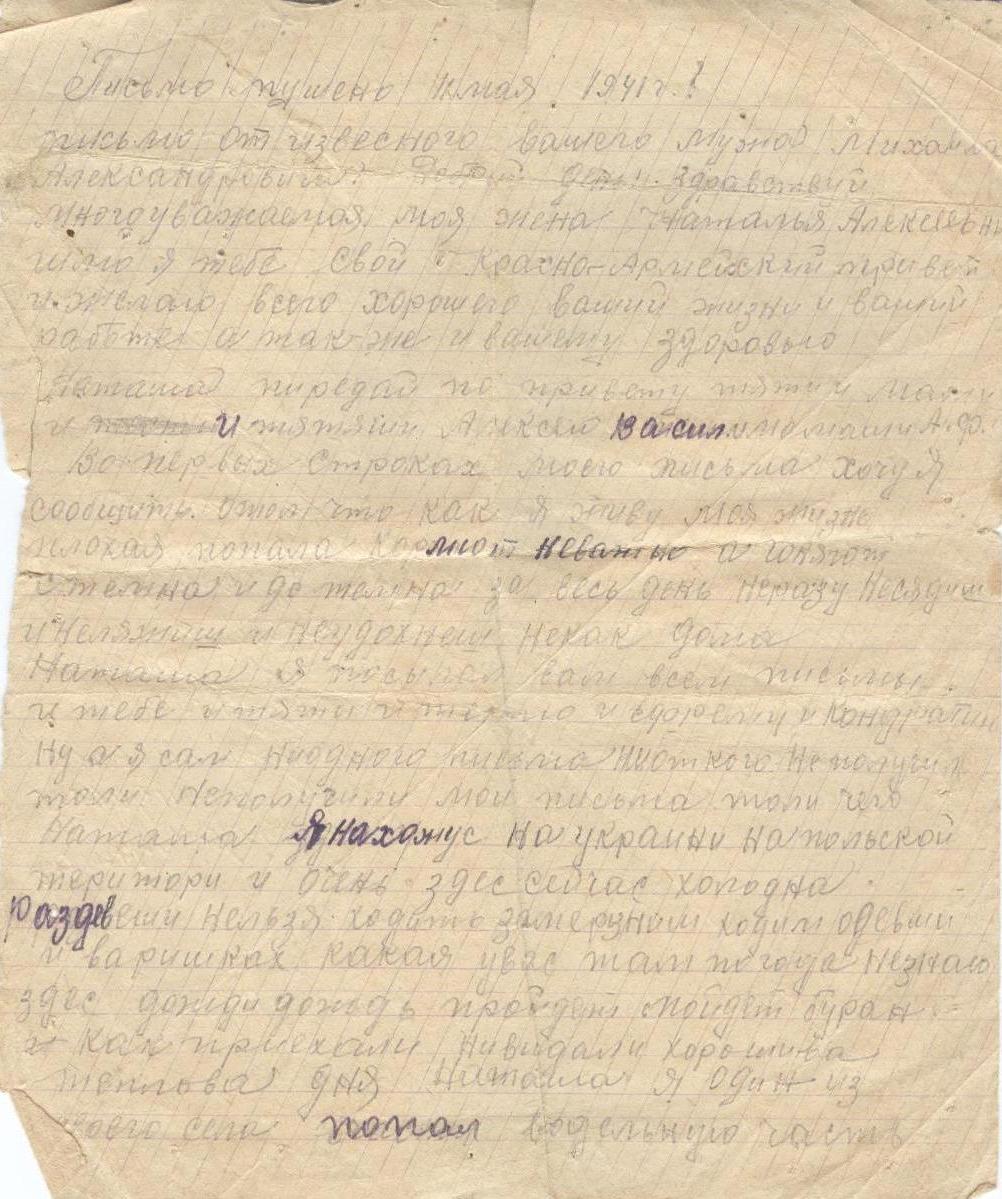 Письмо пушено мая 1941 г.
письмо от извесного вашего мужа Михаила
Александровича Здравствий
многоуважаемая моя жена Наталья Алексевн
шлю я тебе свой Красно-Армейский привет
и желаю всего хорошего ваший жизни и вашей
работе а так-же и вашему здоровью
Наташа передай по привету тяти и мами
и и тятяши Алексею Васил мамаши А.Ф.
Во-первых строках моего письма хочу я
сообщить отом что как я живу моя жизня
плохая попала кормют неважно а гоняют
стемна и до темна за весь день неразу несядиш
и неляжиш и неудохнеш некак дома
Наташа я посылал вам всем письмы
и тебе и тяти и и ефрему и Кондратию
ну а я сам ниодного письма ниоткого неполучил
толи неполучили мои письма толи чего
Наташа Я нахожус на украини на польской
територи и очень здес сейчас холодна
раздевши нельзя ходить замерзним ходим одевши
и варишках какая увас там погода незнаю
здес дожди дождь пройдет пойдет буран
как приехали нивидали хорошива
теплова дня Наташа я один из
своего села попал водельную часть